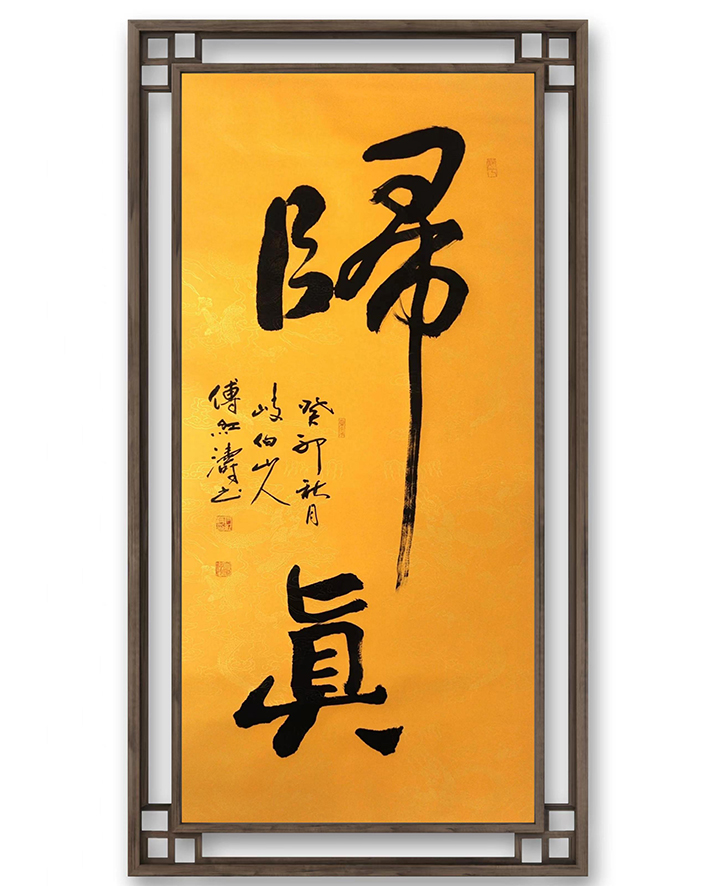 歸真
癸卯秋月
岐伯山人
傅紅濤书